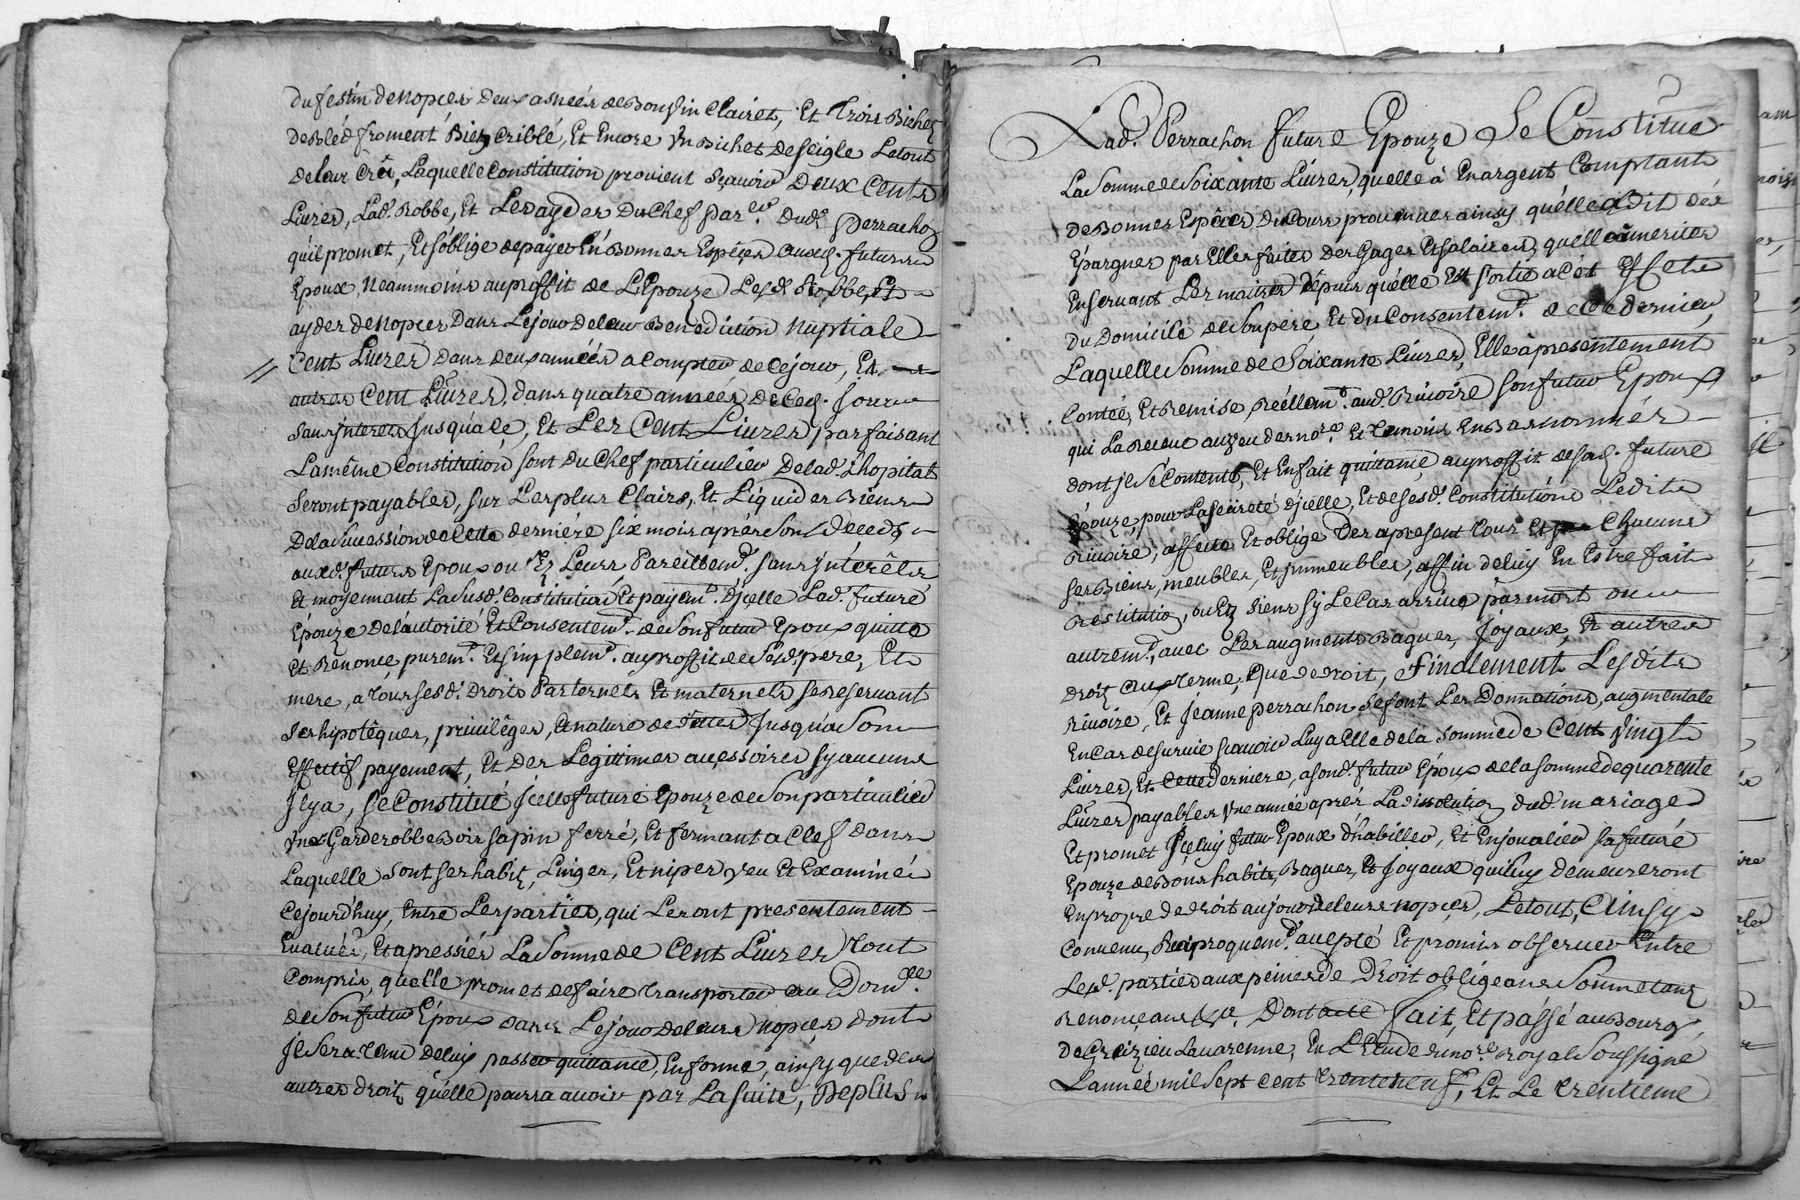 du festin de nopces deux asnées de bon vin Clairet, Et trois Bichets
de bléd froment Bien Criblé, Et Encore Un Bichet de seigle Le tout
de leur Crû, Laquelle Constitution provient sçavoir Deux Cents
Livres, Lad. Robbe, Et Les aydes Du Chef par dud. Perrachon
qu'il promet, Et s'oblige de payer En Bonnes Espéces auxd. futurs
Epoux, Neammoins au proffit de L'Epouze Lesd. Robbe, Et
aydes de Nopces Dans Le jour de leur Benediction Nuptiale
Cent Livres dans deux années a Compter de Cejour, Et
autres Cent Livres, dans quatre années, de Ced. Jour
sans jnterets Jusqu'a ce, Et Les Cent Livres parfaisant
La même Constitution sont du Chef particulier De lad. Chopitat
seront payables, sur Les plus Clairs, Et Liquides Biens
De la Succession de Cette derniére six mois aprés Son Décéds
auxd. futurs Epoux ou Es Leurs Pareillemt. sans jnterêts
Et moyennant La Susd. Constitution Et payemt. D'jçelle Lad. future
Epouze de l'autorité Et Consentemt. de Son futur Epoux quitte
Et Renonce puremt. Et simplemt. au proffit de Sesd. pere, Et
mere, a tous ses d. Droits Paternels Et maternels se reservant
ses hipotêques, priviléges, Et nature de dottes Jusqu'a Son
Effectif payement, Et des Légitimes acçessoires sy aucuns
Jl y a, se Constitue Jcelle future Epouze de Son particulier
Une Garderobbe Bois sapin ferré, Et fermant a Clef dans
Laquelle sont ses habits, Linges, Et nipes veu Et Examiné
Cejourd'huy, Entre Les parties, qui Les ont presentement
Evalués, Et apressiés La Somme de Cent Livres Tout
Compris, quelle promet de faire transporter au Domlle.
de Son futur Époux dans Le jour de leurs Nopces dont
Jl sera tenu de luy passer quittance, En forme, ainsy que des
autres droits qu'elle pourra avoir par La suite, De plus
Lad. Perrachon future Epouze Se Constitue
La Somme de Soixante Livres, quelle à En argent Comptant
de Bonnes Espéces Du Cours provenues ainsy qu'elle a dit des
Epargnes par Elle faites des Gages Et salaires, quelle a merités
En servant Les maitres depuis qu'elle Est sortie a cet Effet
du Domicile de Son pere Et du Consentemt. de Ce Dernier,
Laquelle Somme de Soixante Livres, Elle à presentement
Contée, Et Remise Réellemt. aud. Rivoire son futur Epoux
qui La Receue au veu des nore. Et temoins En Bas nommés
dont jl Se Contente, Et En fait quittance au proffit de sad. future
Epouze, pour La Seureté d'jcelle, Et de Ses d. Constitutions Ledit
Rivoire, affecte Et oblige Des apresent tous Et Chacuns
ses Biens, meubles, Et jmmeubles, affin de luy En Estre fait
Restitution, ou Es Siens sy Le Cas arrive par mort ou
autremt., avec Les augments Bagues, Joyaux, Et autres
droits aux terme, Que de droit, Finalement Lesdits
Rivoire, Et Jeanne Perrachon se font Les Donnations, augmentale
En Cas de survie sçavoir Luy a Elle de la Somme de Cent Vingt
Livres, Et Cette derniere, a sond. futur Epoux de la somme de quarente
Livres payables Une année aprés La dissolution dud. mariage
Et promet Jçeluy futur Epoux d'habiller, Et Enjoualier sa future
Epouze de Bons habits, Bagues, Et joyaux qui luy demeureront
En propre de droit au jour de leurs nopces, Le tout, Ainsy
Convenu Reciproquemt. accepté Et promis observer Entre
Lesd. parties aux peines de Droit obligeans Soumetans
Renonçeans &c. Dont acte fait, Et passé au Bourg
De Grezieu La varenne, En L'Etude du nore. royal Soussigné
L'année mil sept cent trente neuf, Et Le trentieme